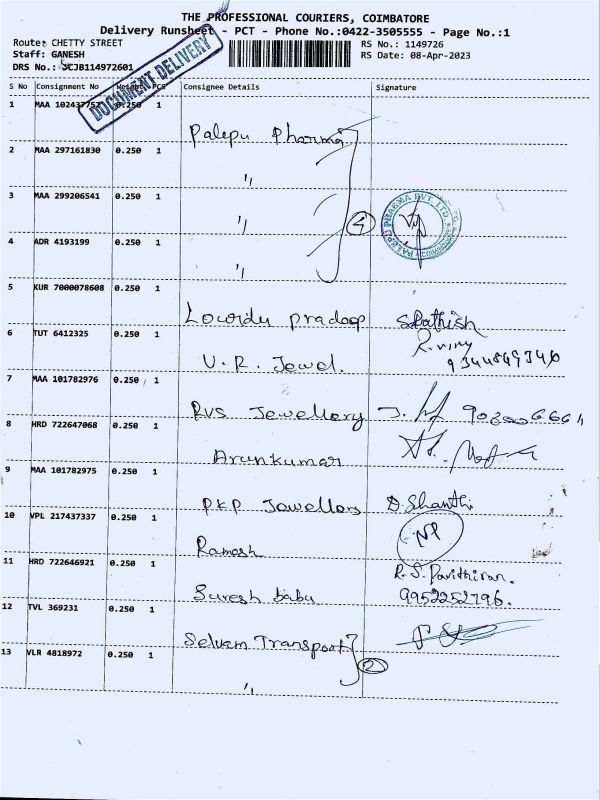 THE PROFESSIONAL COURIERS, COIMBATORE
Delivery Runsheet - PCT - Phone No.:0422-3505555 - Page No.:1
Route: CHETTY STREET
RS No.: 1149726
Staff: GANESH
RS Date: 08-Apr-2023
DRS No.: SCJB114972601
DOCUMENT DELIVERY
S No Consignment No Weight PCS Consignee Details Signature
1 MAA 102437757 0.250 1 Palepu Pharma
2 MAA 297161830 0.250 1 "
3 MAA 299206541 0.250 1 " 4
4 ADR 4193199 0.250 1 "
5 KUR 7000078608 0.250 1 Lourdu pradeep
6 TUT 6412325 0.250 1 V.R. Jewel. 9344849340
7 MAA 101782976 0.250 1 RVS Jewellery
8 HRD 722647068 0.250 1 Arunkumar
9 MAA 101782975 0.250 1 PKP Jewellers D.Shanthi
10 VPL 217437337 0.250 1 Ramesh NP
11 HRD 722646921 0.250 1 Suresh babu R.S.Pavithiran. 9952252796.
12 TVL 369231 0.250 1 Selvam Transport
13 VLR 4818972 0.250 1 " 2